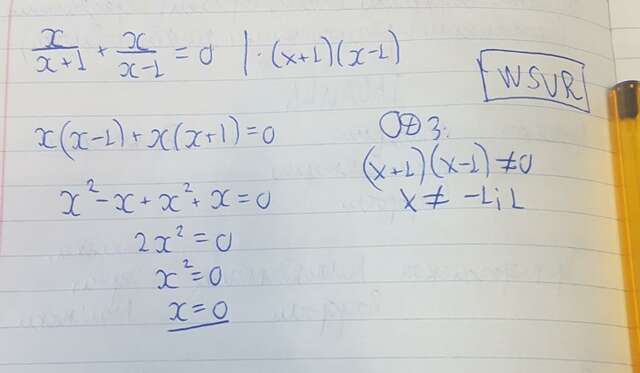 x/(x+1) + x/(x-1) = 0 | · (x+1)(x-1)
WSVR
x(x-1) + x(x+1) = 0
ОДЗ:
(x+1)(x-1) ≠ 0
x² - x + x² + x = 0
x ≠ -1; 1
2x² = 0
x² = 0
x = 0